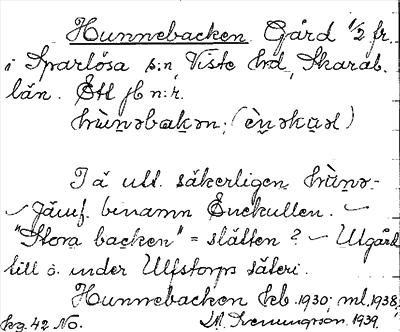 Hunnebacken. Gård 1/2 fr.
i Sparlösa s:n, Viste hd, Skarab.
län. Ett jb n:r.
hùnəbakən; (ènəkuḷ)
I ä utt. säkerligen hùnə-
Jämf. binamn Enekullen. —
"Stora backen" = slätten? — Utgård
till ö. under Ulfstorps säteri.
Hunnebacken kb. 1930; ml. 1938;
kg. 42 No. M. 1939